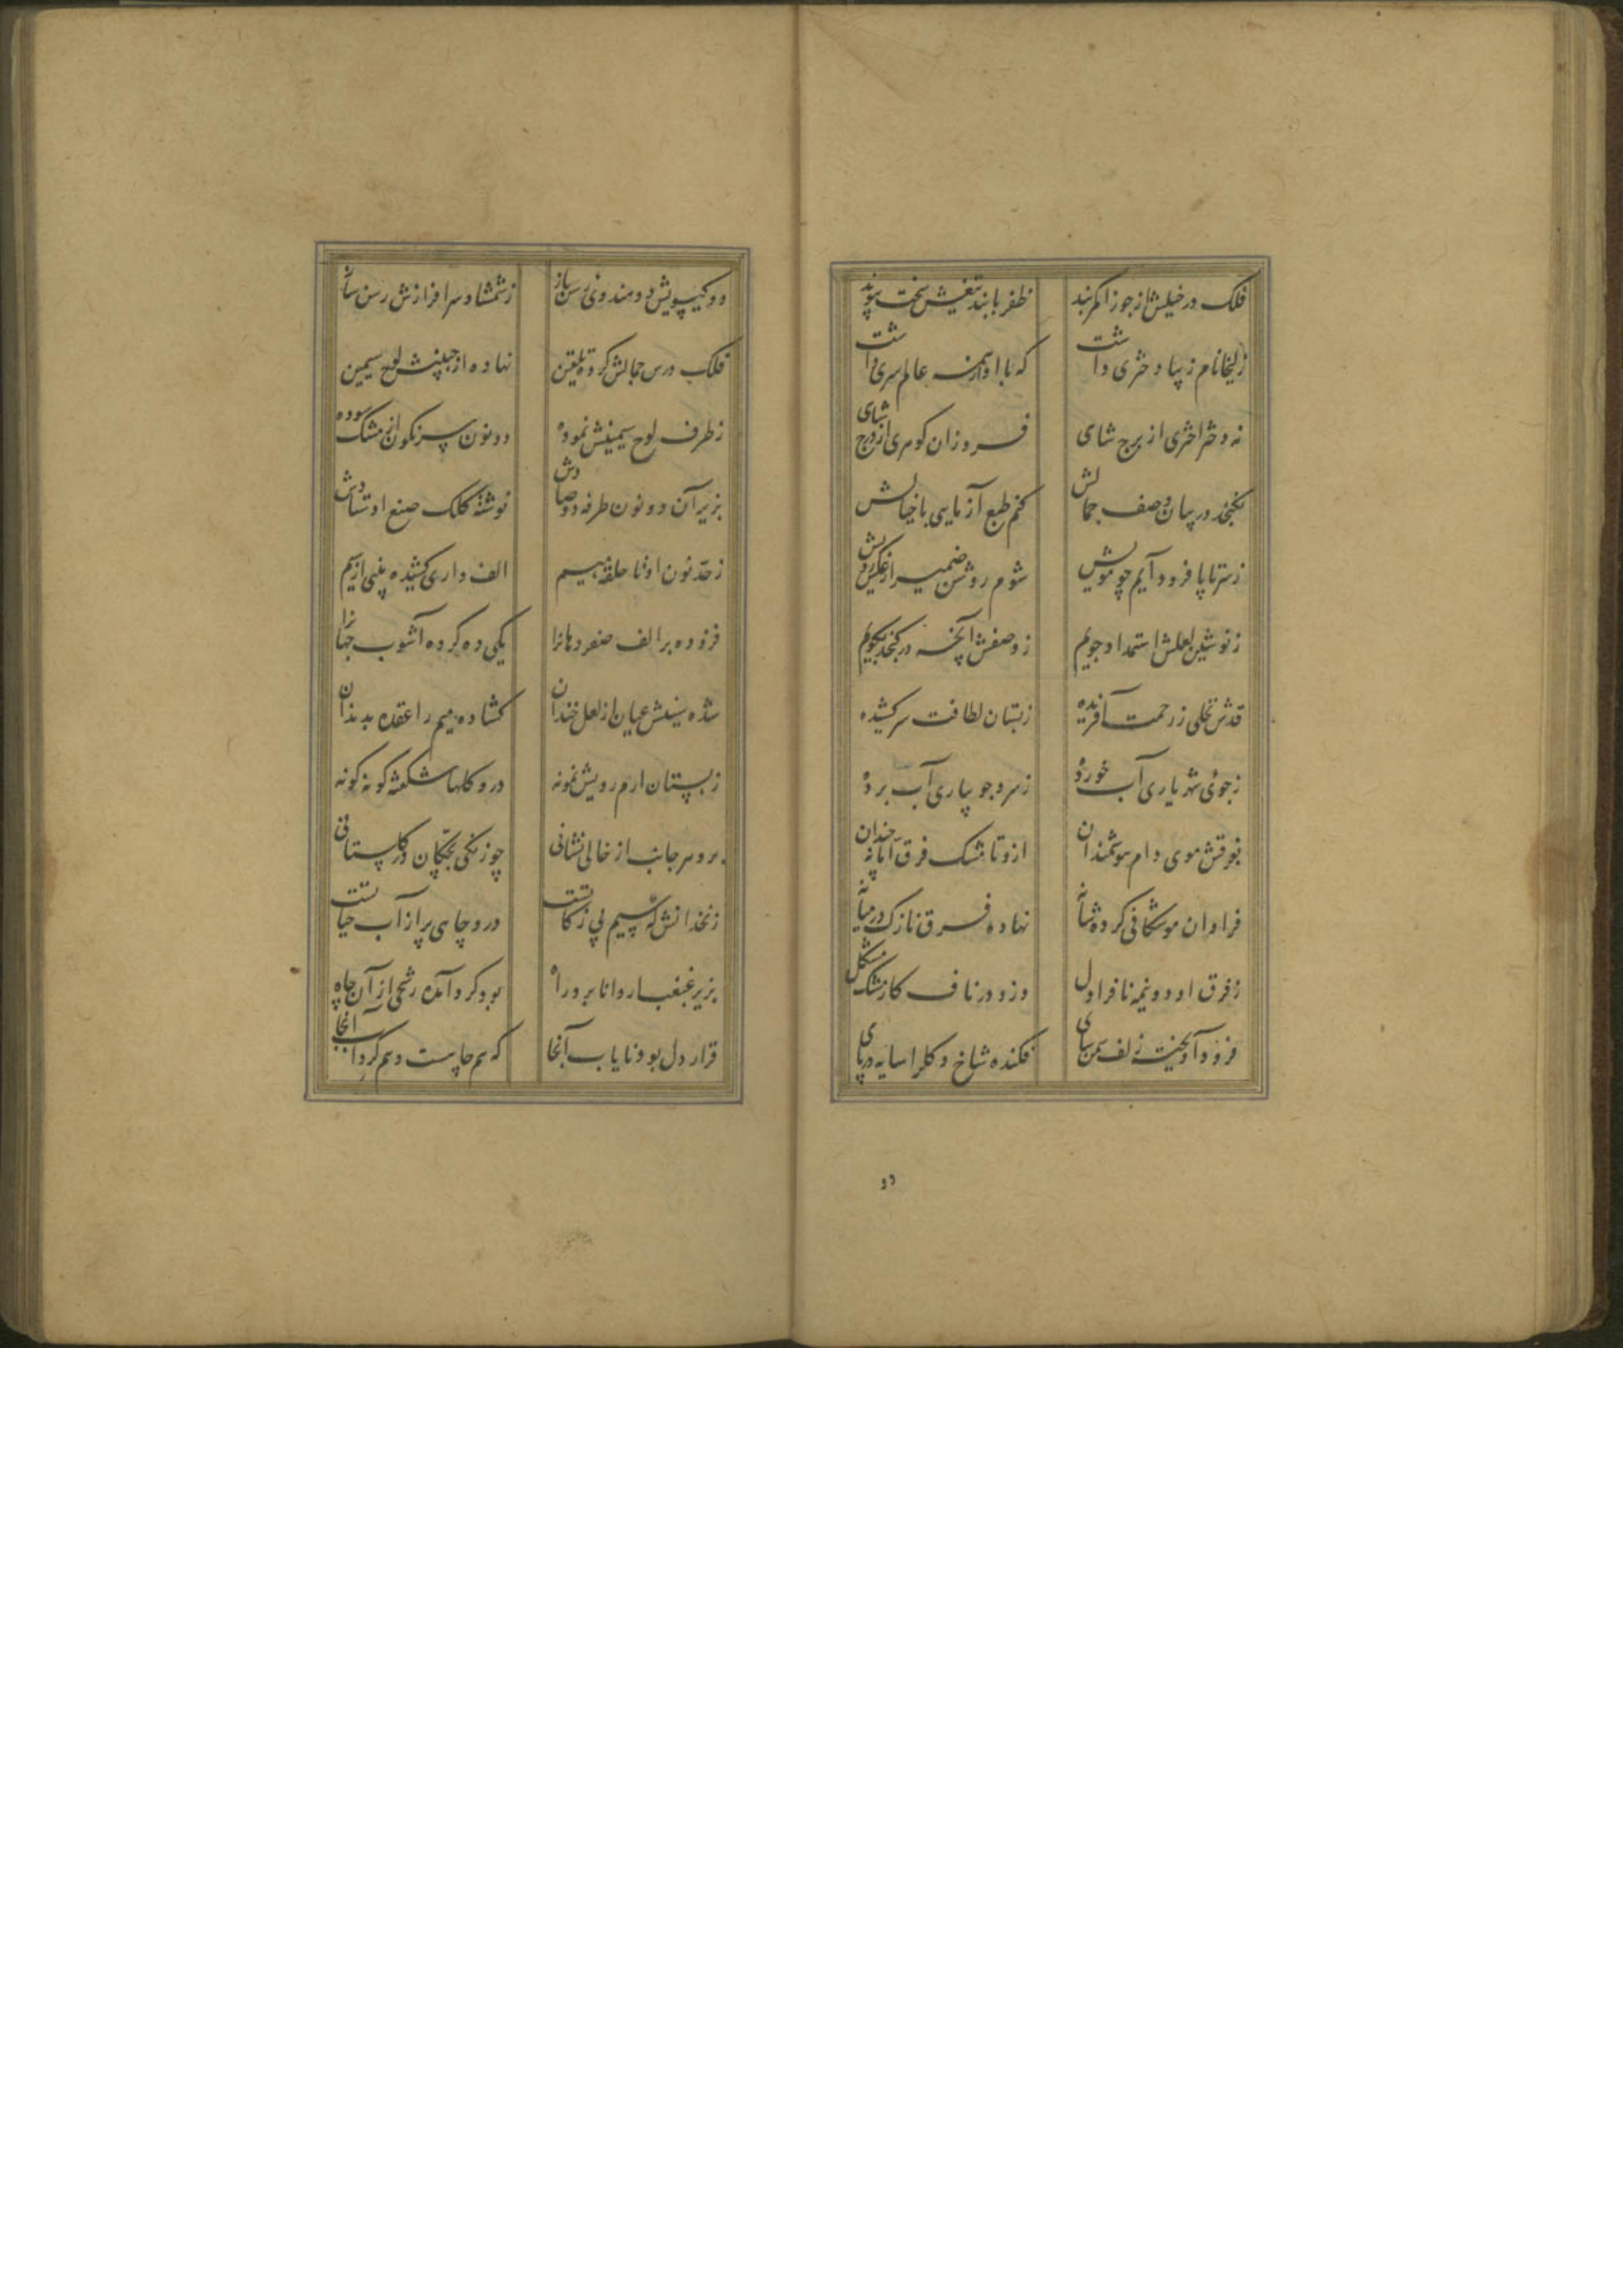 فلک در خیلش از جوزا کمر بند
ظفر با بند تیغش سخت پیوند
زلیخا نام زیبا دختری داشت
که با او از همه عالم سری داشت
نه دختر اختری از برج شاهی
فروزان گوهری از درج شاهی
نگنجد در بیان وصف جمالش
کنم طبع آزمایی با خیالش
ز سر تا پا فرود آیم چو مویش
شوم روشن ضمیر از عکس رویش
ز نوشین لعلش استمداد جویم
ز وصفش آنچه در گنجد بگویم
قدش نخلی ز رحمت آفریده
ز بستان لطافت سر کشیده
ز جوی شهریاری آب خورده
ز سرو جویباری آب برده
بفرقش موی دام هوشمندان
ازو تا مشک فرق اما نه چندان
فراوان موشکافی کرده شانه
نهاده فرق نازک در میانه
ز فرق او دو نیمه نافه را دل
وزو در نافه کار مشک مشکل
فرو آویخت زلف سمن سای
فکنده شاخ گل را سایه در پای
دو
دو گیسویش دو هندوی رسن ساز
ز شمشاد سرافرازش رسن باز
فلک درس جمالش کرده تلقین
نهاده از جبینش لوح سیمین
ز طرف لوح سیمینش نموده
دو نون سرنگون از مشک سوده
بزیر آن دو نون طرفه دو صادش
نوشته کلک صنع اوستادش
ز حد نون او تا حلقه میم
الف واری کشیده بینی از سیم
فزوده بر الف صفر دهانرا
یکی ده کرده آشوب جهانرا
شده سینش عیان از لعل خندان
گشاده میم را عقده بدندان
ز بستان ارم رویش نمونه
درو گلها شکفته گونه گونه
برو هر جانب از خالی نشانی
چو زنگی بچگان در گلستانی
زنخدانش که سیم بی زکاتست
درو چاهی پر از آب حیاتست
بزیر غبغب ار دانا برد راه
بود گرد آمده رشحی از آن چاه
قرار دل بود نایاب آنجا
که هم چاهست و هم گرداب آنجا